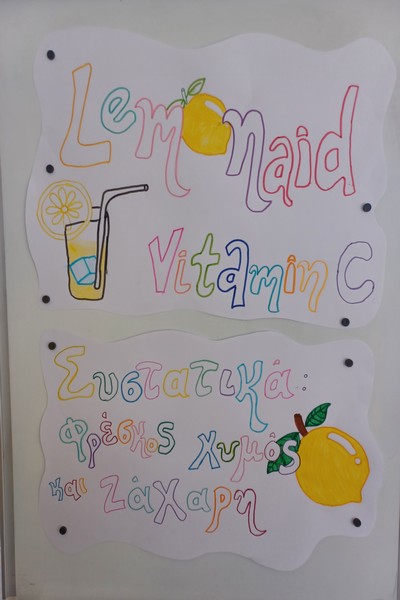 Lemonaid
Vitamin C
Συστατικά:
Φρέσκος χυμός
και Ζάχαρη